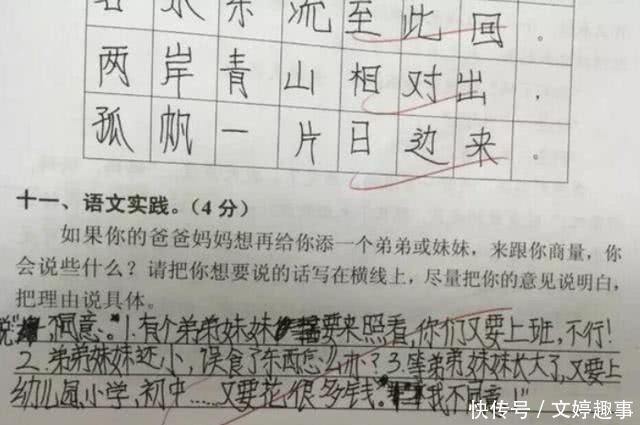 水东流至此回。
两岸青山相对出，
孤帆一片日边来。
十一、语文实践。(4分)
如果你的爸爸妈妈想再给你添一个弟弟或妹妹，来跟你商量，你
会说些什么？请把你想要说的话写在横线上，尽量把你的意见说明白，
把理由说具体。
说，不同意。1.有个弟弟妹妹要来照看，你们又要上班，不行！
2.弟弟妹妹还小，误食了东西怎么办？3.等弟弟妹妹长大了，又要上
幼儿园，小学，初中……又要花很多钱。我不同意！"
快传号／文婷趣事